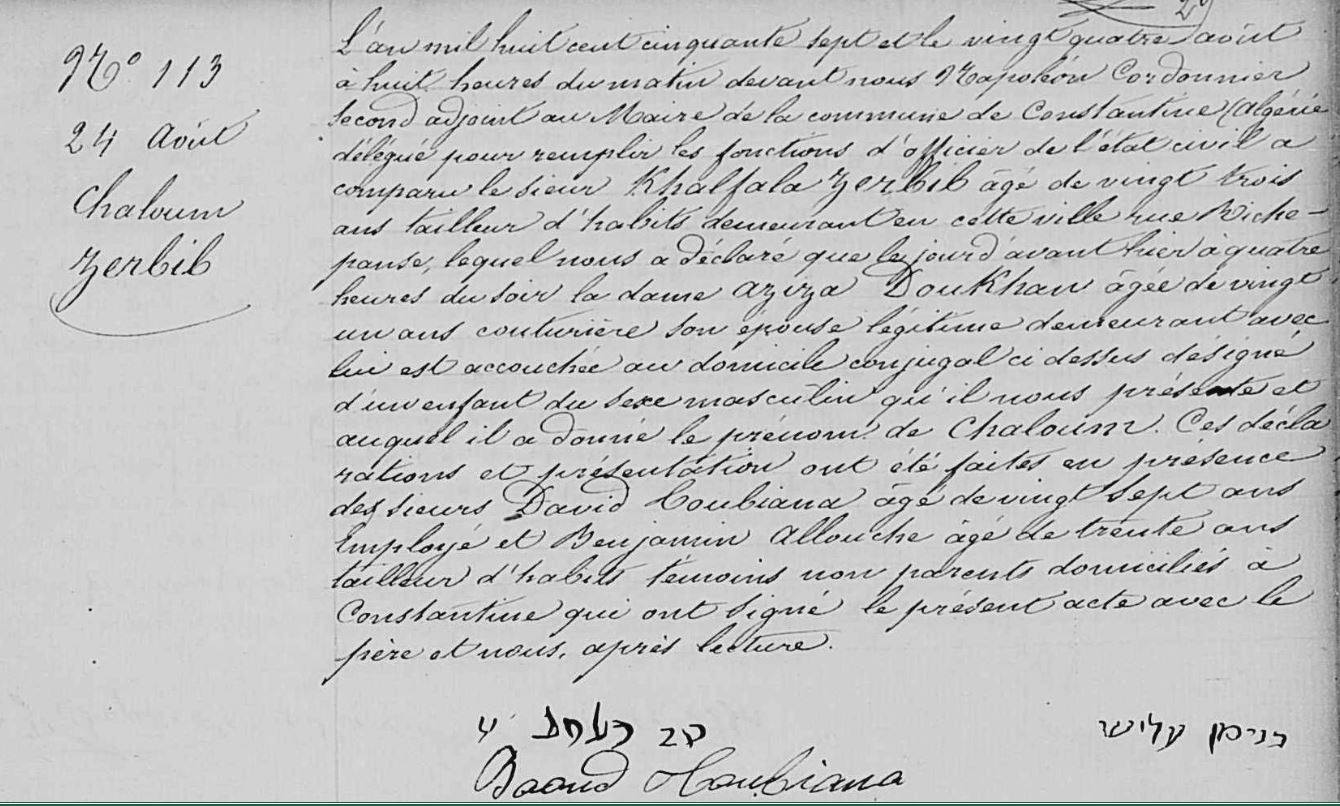 29
N° 113
24 Août
Chaloum
Zerbib
L'an mil huit cent cinquante sept et le vingt quatre août
à huit heures du matin devant nous Napoléon Cordonnier
second adjoint au Maire de la commune de Constantine (Algérie
délégué pour remplir les fonctions d'officier de l'état civil a
comparu le sieur Khalfala Zerbib âgé de vingt trois
ans tailleur d'habits demeurant en cette ville rue Riche-
panse, lequel nous a déclaré que le jour d'avant hier à quatre
heures du soir la dame Aziza Doukhan âgée de vingt
un ans couturière son épouse légitime demeurant avec
lui est accouchée au domicile conjugal ci dessus désigné
d'un enfant du sexe masculin qu'il nous présente et
auquel il a donné le prénom de Chaloum. Ces décla
rations et présentation ont été faites en présence
des sieurs David Toubiana âgé de vingt sept ans
Employé et Benjamin Allouche âgé de trente ans
tailleur d'habits témoins non parents domiciliés à
Constantine qui ont signé le présent acte avec le
père et nous, après lecture.
עליש
Toubiana